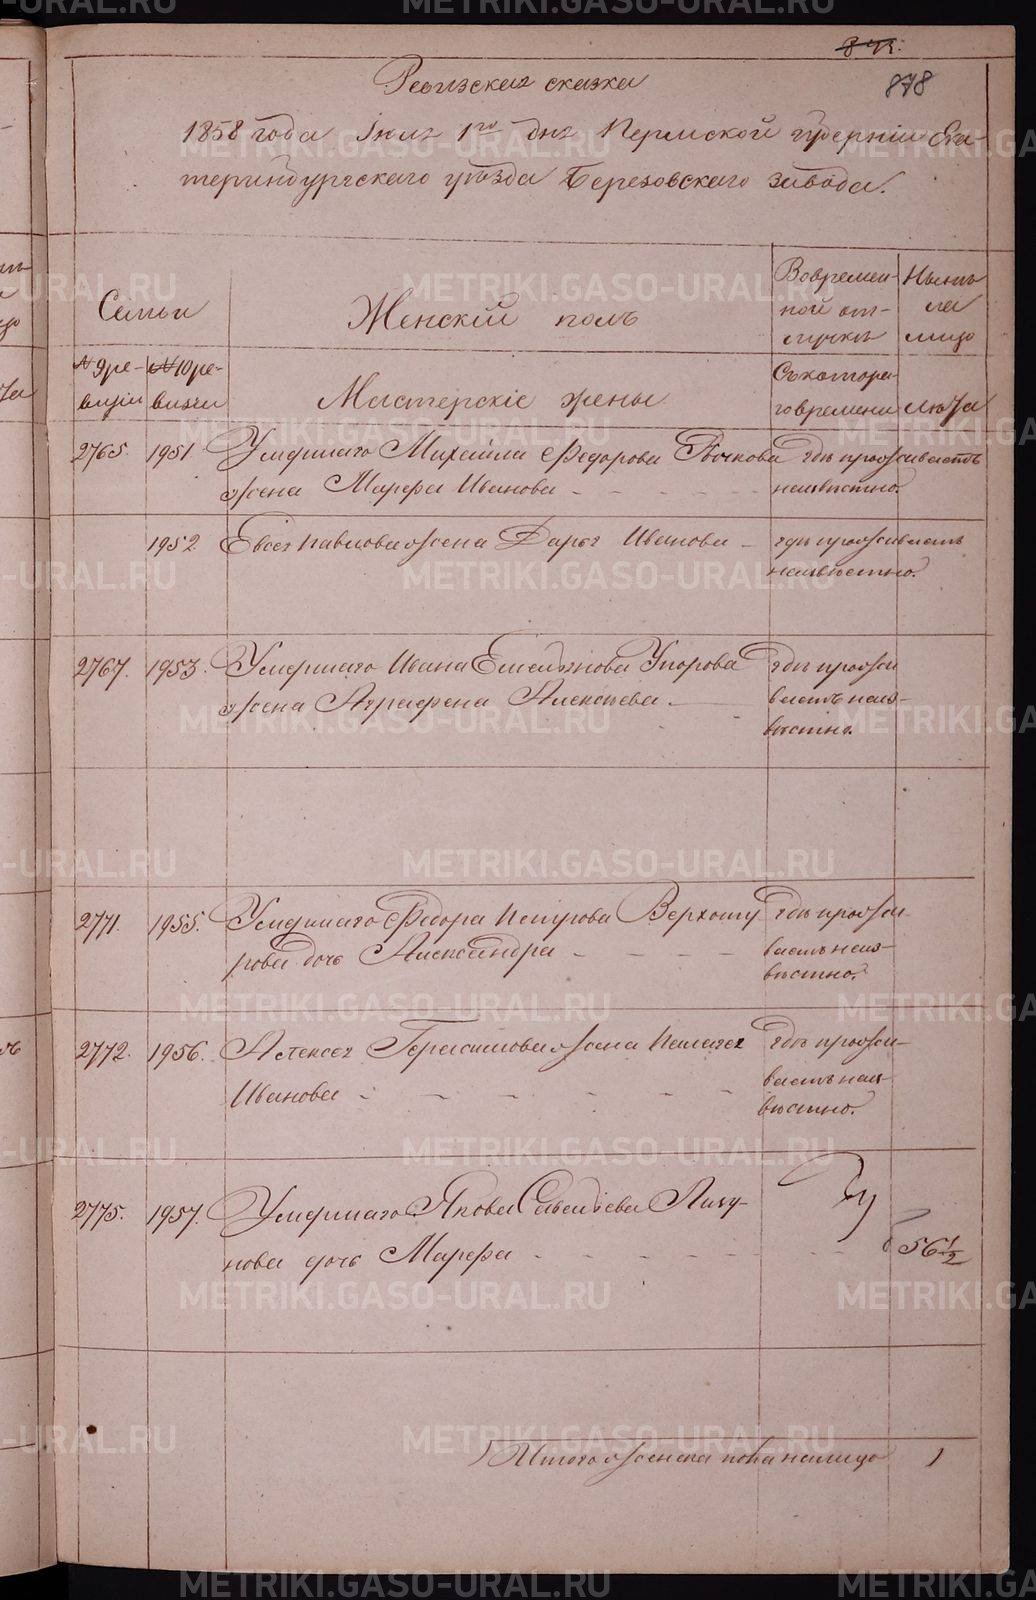 878
Ревизская сказка
1858 года Июля 1го дня Пермской губернии Ека-
теринбургскаго уѣзда Березовскаго завода.
Семьи
Женскій полъ
Вовремен-
ной от-
лучкѣ
Нынѣ
на
лицо
№ 9 ре-
визіи
№ 10 ре-
визіи
Мастерскіе жены
Съкотора-
говремени
лѣта
2765. 1951. Умершаго Михаила Федорова Бочкова гдѣ проживаетъ
жена Марфа Иванова - - - - неизвѣстно.
1952 Евсея Павлова жена Дарья Иванова - гдѣ проживаетъ
неизвѣстно.
2767. 1953. Умершаго Ивана Емельянова Упорова гдѣ прожи
жена Аграфена Алексѣева - ваетъ неиз-
вѣстно.
2771. 1955. Умершаго Федора Петрова Верхоту гдѣ прожи-
рова дочь Александра - - - - ваетъ неиз-
вѣстно.
2772. 1956. Алексея Герасимова жена Пелагея гдѣ прожи-
Иванова - - - - - - ваетъ неиз-
вѣстно.
2775. 1957. Умершаго Якова Савельева Лагу-
нова дочь Марфа - - - - - 56 1/2
Итого женска пола налицо 1
METRIKI.GASO-URAL.RU